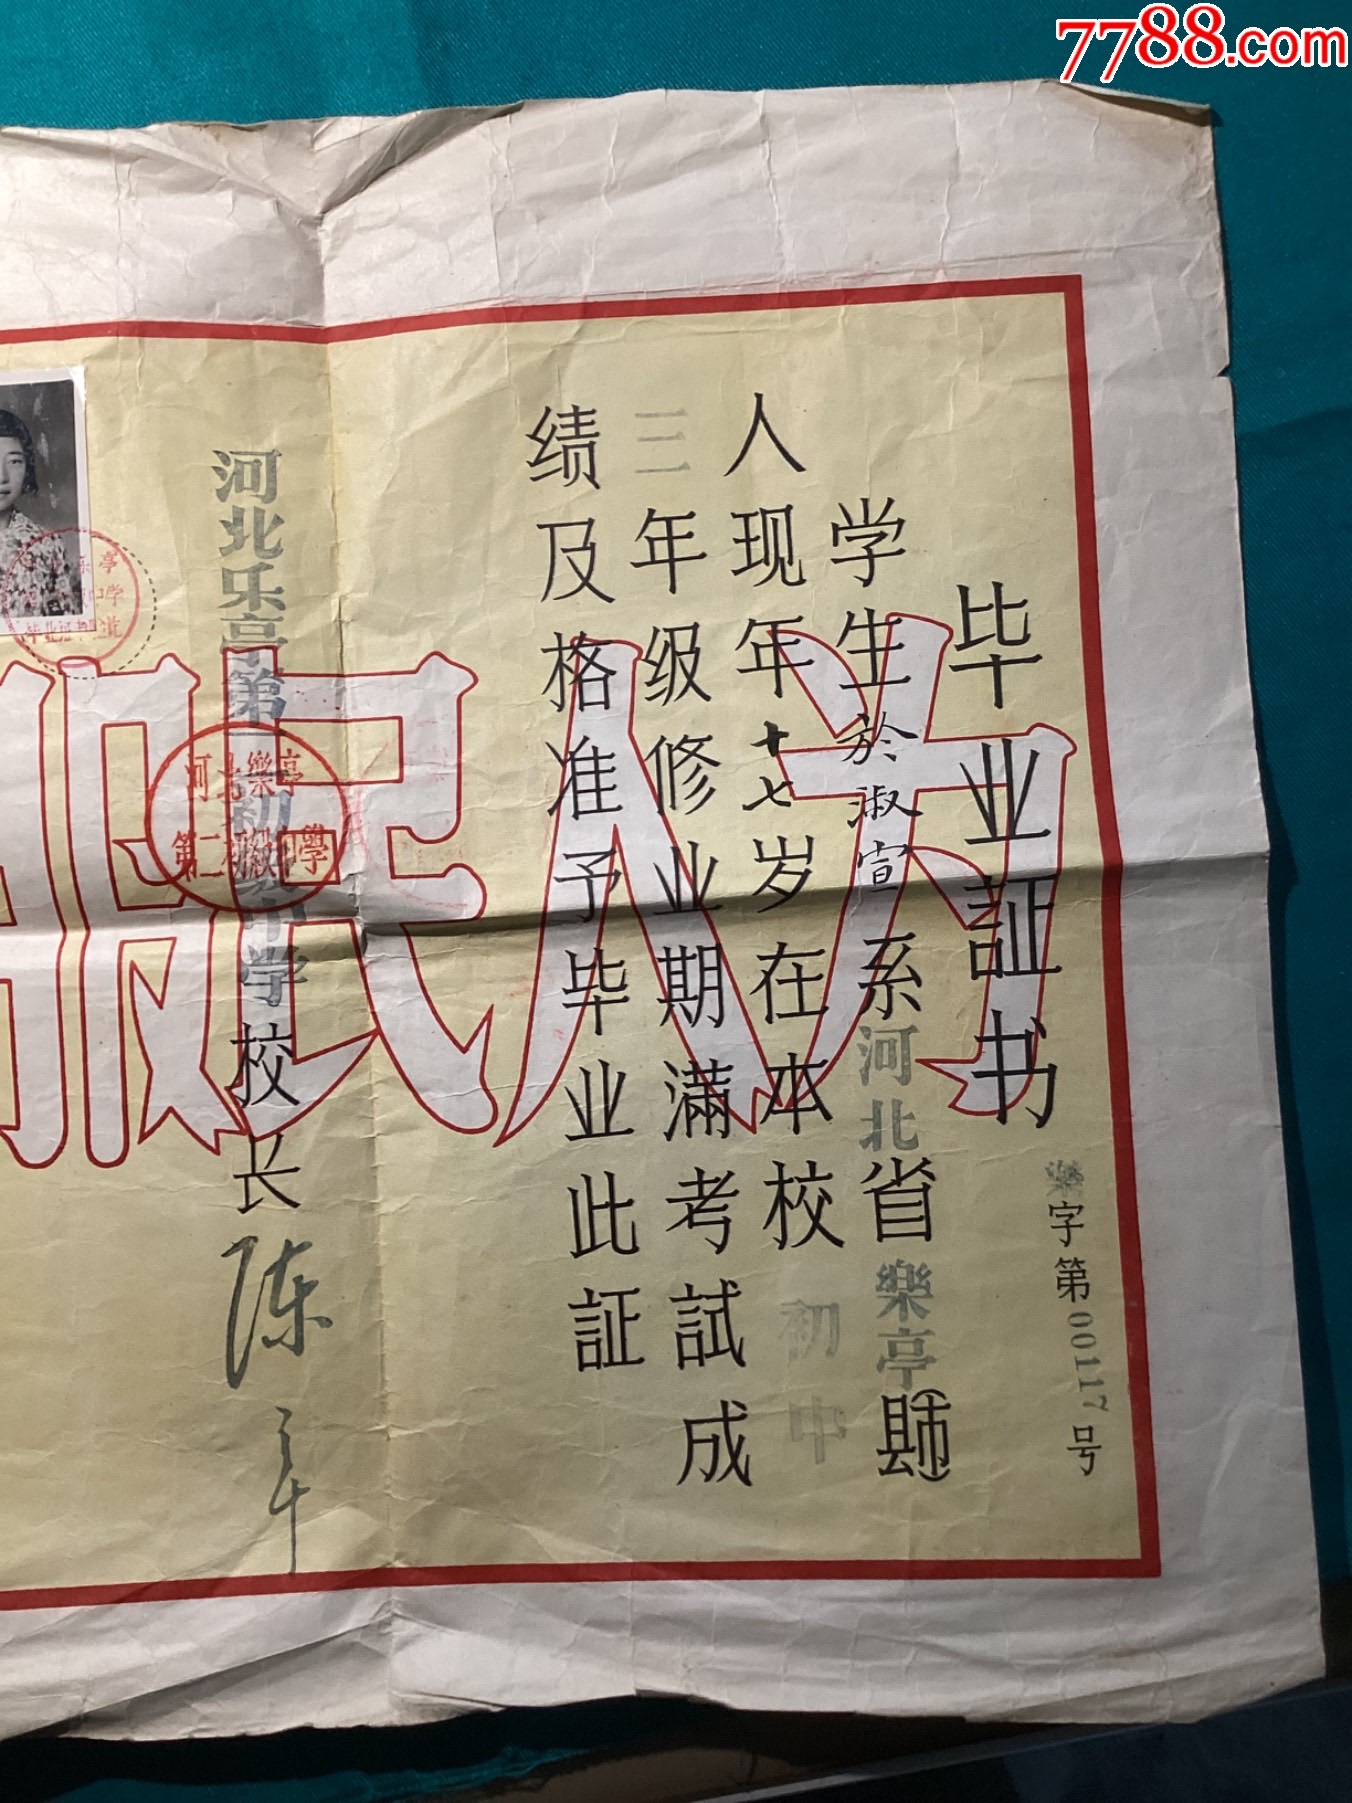 7788.com
毕业証书
樂字第00117号
学生於淑宣系河北省樂亭县(市)
人现年十七岁在本校初中
三年级修业期滿考試成
绩及格准予毕业此証
河北乐亭第二初级中学校长陈
河北樂亭
第二初級中學
为人民服